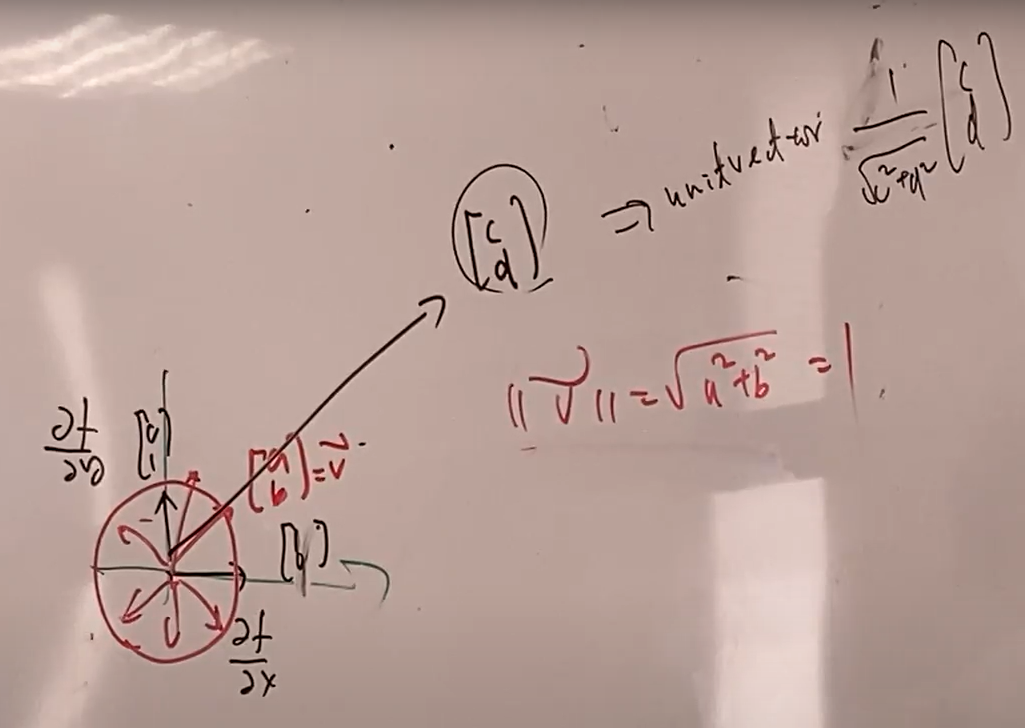 [c d] ⇒ unit vector 1/√(c²+d²) [c d]
‖v⃗‖ = √(a²+b²) = 1
∂f/∂y [0 1] [a b] = v⃗
∂f/∂x